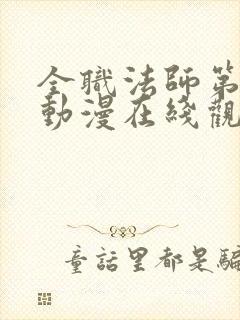 全職法師第
動漫在綫觀
童話里都是騙